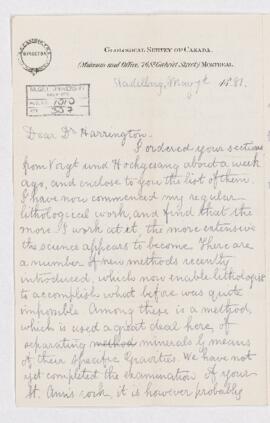 GEOLOGICAL SURVEY OF CANADA.
(Museum and Office, 76 St. Gabriel Street,) MONTREAL.
May 7th 1881.
McGILL UNIVERSITY
ARCHIVES
Dear Dr Harrington.
I ordered your sections
from Voigt und Hochgesang about a week
ago, and enclose to you the list of them.
I have now commenced my regular
lithological work, and find that the
more I work at it, the more extensive
the science appears to become. There are
a number of new methods recently
introduced, which now enable lithologists
to accomplish what before was quite
impossible. Among these is a method,
which is used a great deal here, of
separating method minerals by means
of their specific Gravities. We have not
yet completed the examination of your
St. Anns rock, it is however probably